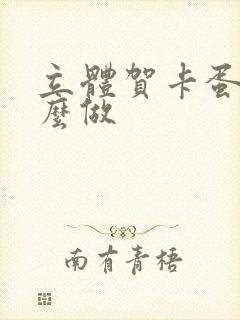 立體賀卡蛋
麼做
南有青梧